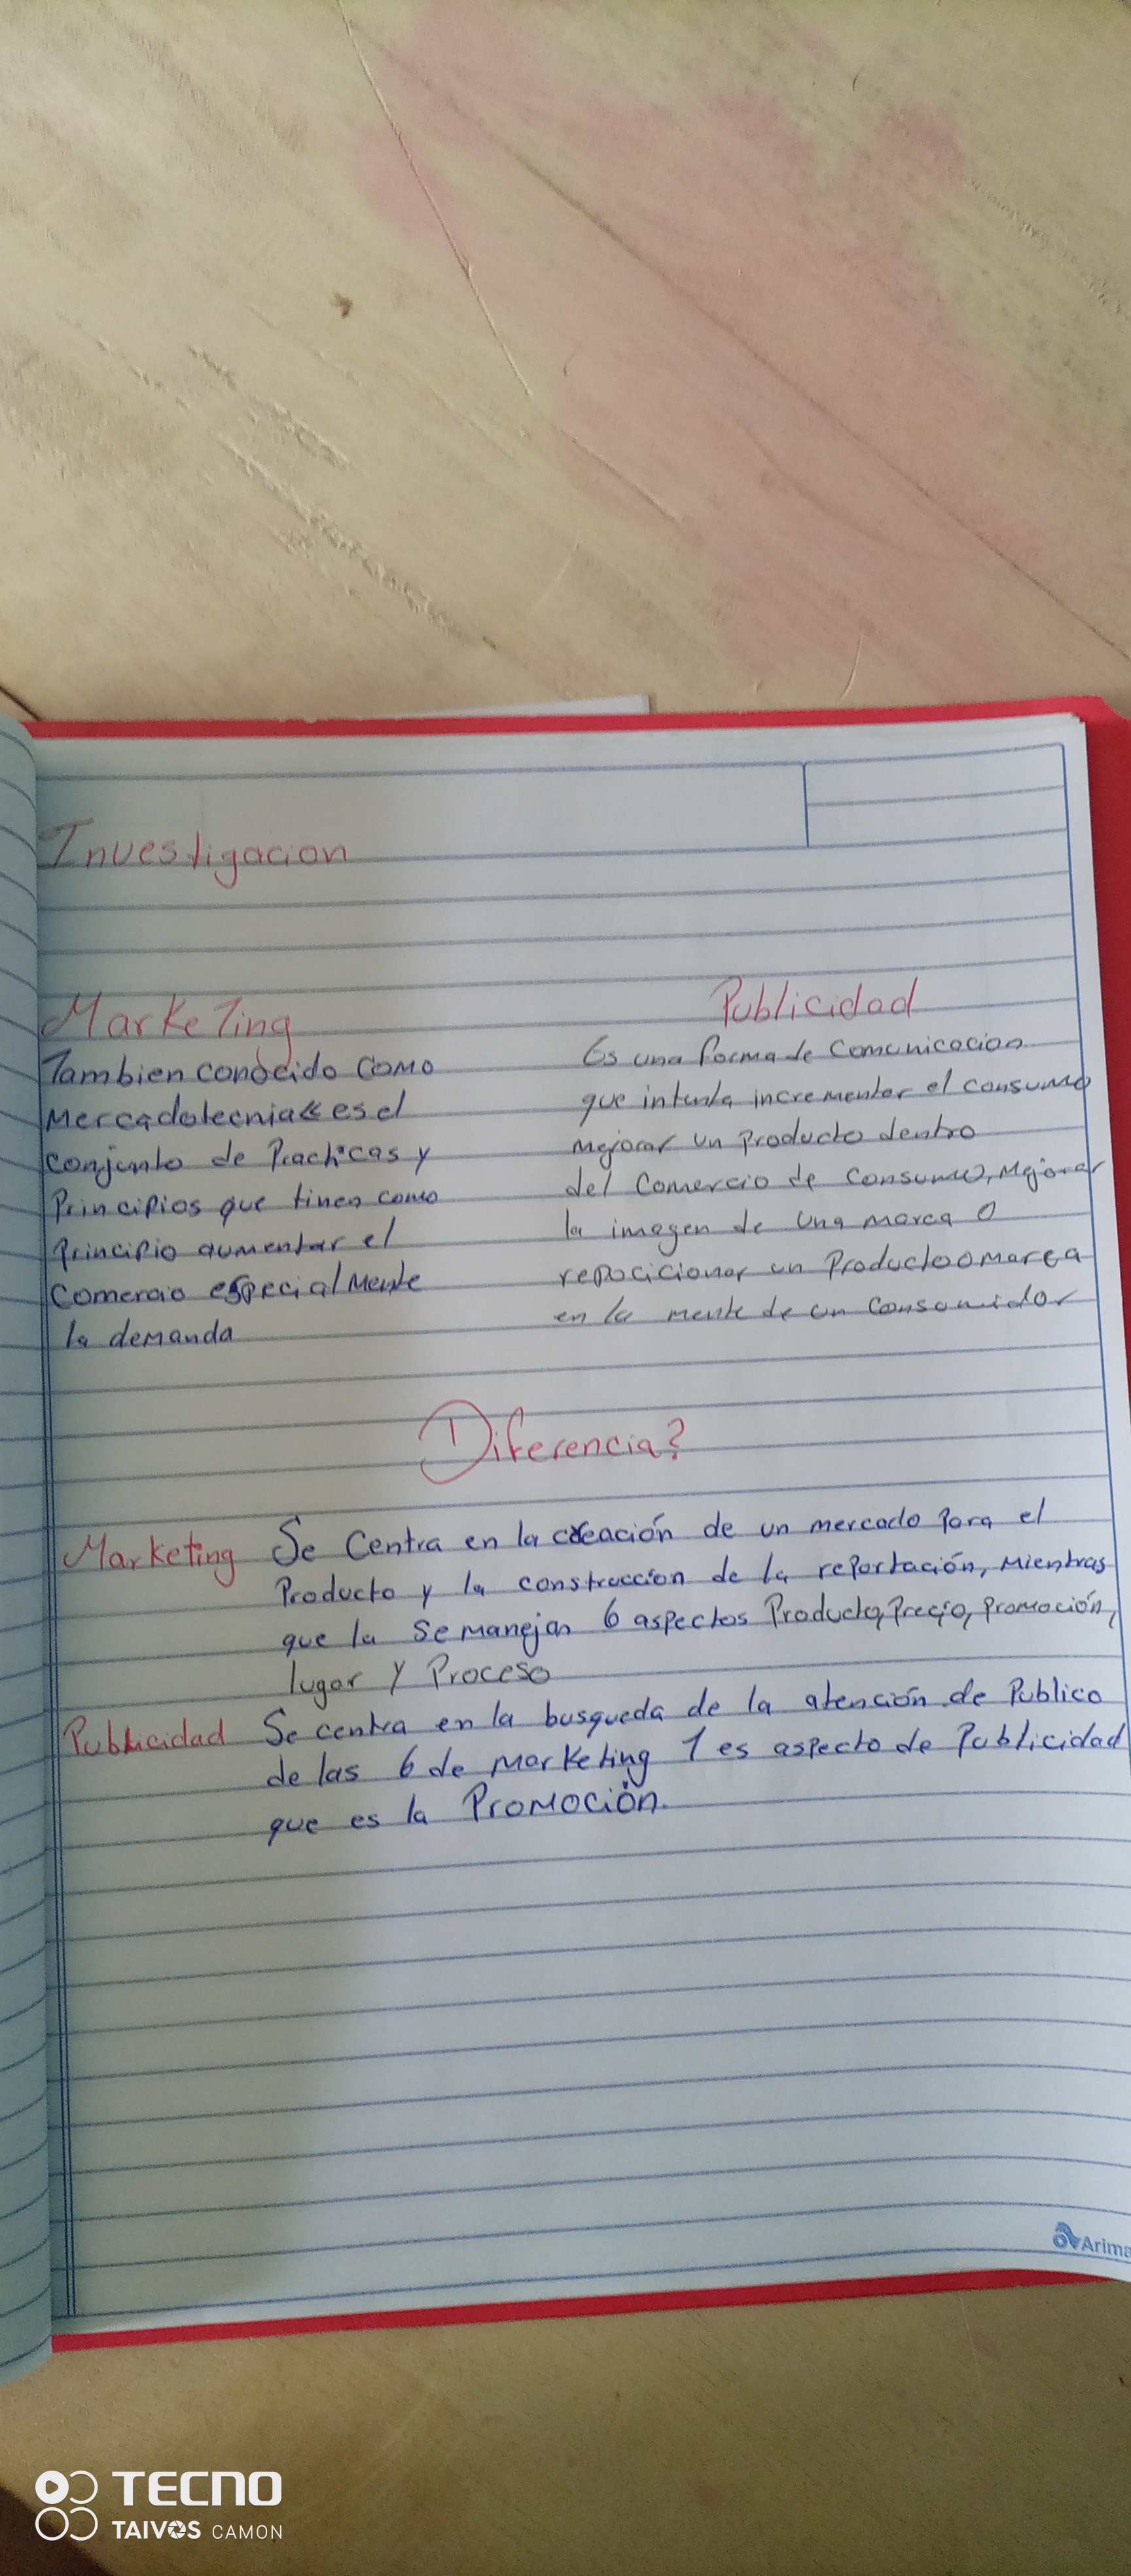 Investigacion
Marketing
Tambien conocido como
Mercadotecnia es el
conjunto de Practicas y
Principios que tinen como
Principio aumentar el
Comercio especialmente
la demanda
Publicidad
Es una forma de comunicacion
que intenta incrementar el consumo
mejorar un producto dentro
del Comercio de Consumo, Mejorar
la imagen de una marca o
reposicionar un Producto o marca
en la mente de un Consumidor
Diferencia?
Marketing Se Centra en la creación de un mercado Para el
Producto y la construccion de la reportación, Mientras
que la Se manejan 6 aspectos Producto, Precio, promoción,
lugar y Proceso
Publicidad Se centra en la busqueda de la atención de Publico
de las 6 de marketing 1 es aspecto de Publicidad
que es la Promoción.
Arima
TECNO
TAIVOS CAMON